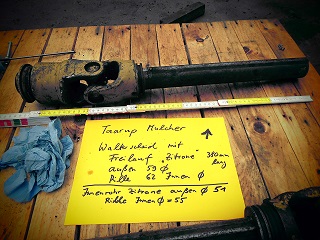 Taarup Mulcher
Walterscheid mit
Freilauf "Zitrone" 380mm
außen 59 Ø lang
Rille 62 Innen Ø
Innenrohr Zitrone außen Ø 51
Rille Innen Ø = 55